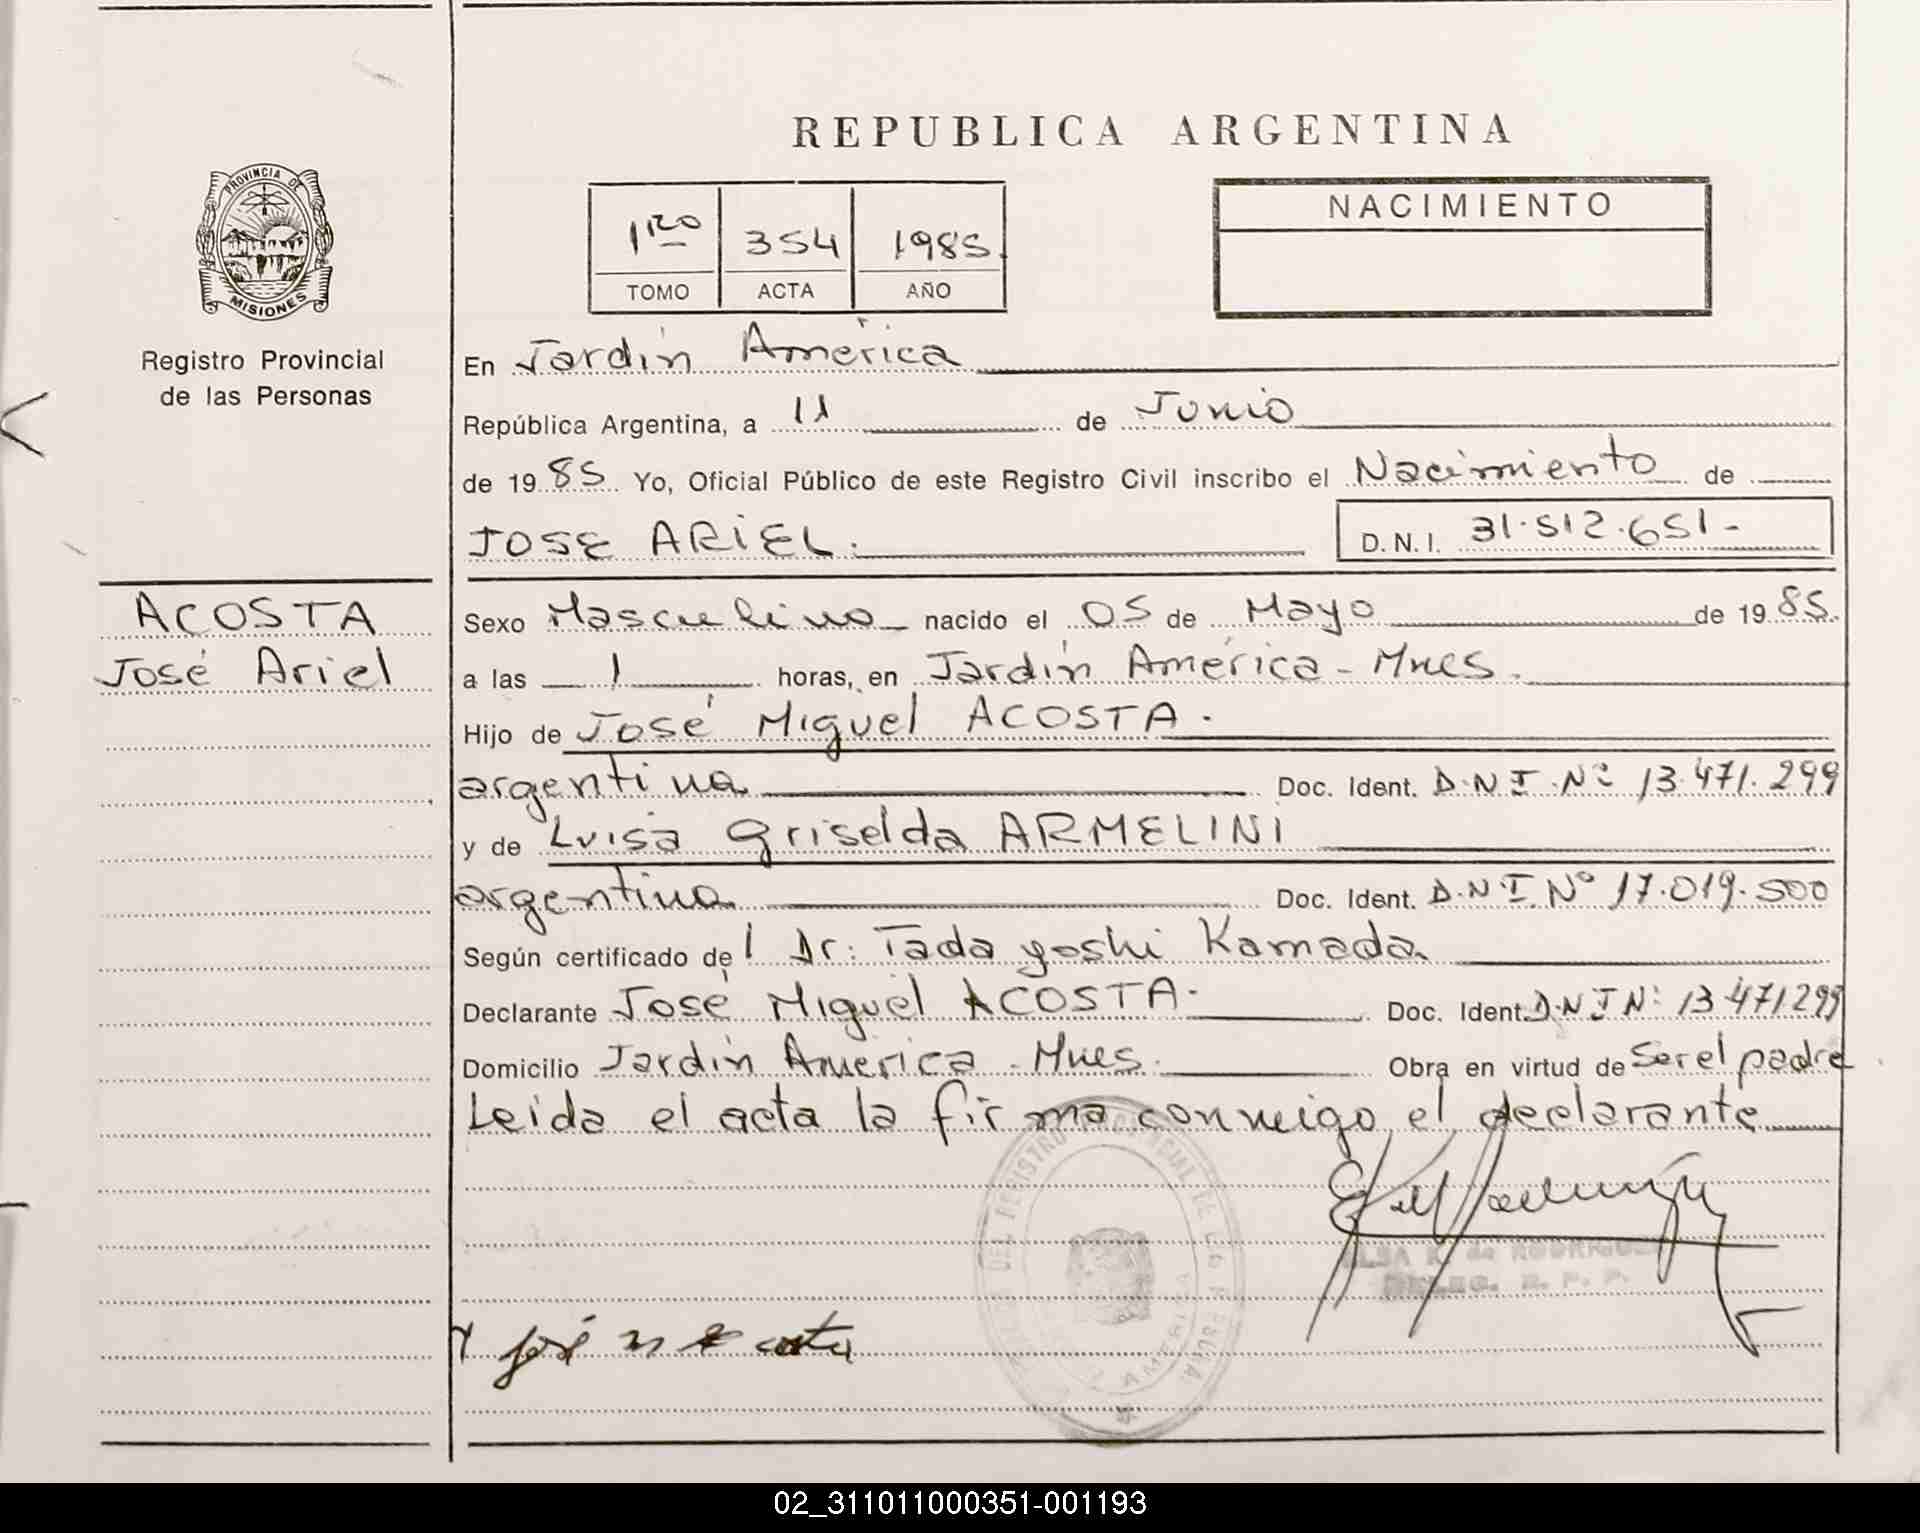 REPUBLICA ARGENTINA
PROVINCIA DE
MISIONES
Registro Provincial
de las Personas
1RO 354 1985.
TOMO ACTA AÑO
NACIMIENTO
En Jardín América
República Argentina, a 11 de Junio
de 1985 Yo, Oficial Público de este Registro Civil inscribo el Nacimiento de
JOSE ARIEL. D.N.I. 31.512.651-
ACOSTA
José Ariel
Sexo Masculino nacido el 05 de Mayo de 1985.
a las 1 horas, en Jardín América - Mnes.
Hijo de José Miguel ACOSTA.
argentina Doc. Ident. D.N.I. Nº 13.471.299
y de Luisa Griselda ARMELINI
argentina Doc. Ident. D.N.I. Nº 17.019.500
Según certificado del Dr: Tada yoshi Kamada
Declarante José Miguel ACOSTA. Doc. Ident. D.N.I Nº 13.471299
Domicilio Jardín América - Mnes. Obra en virtud de Ser el padre
Leida el acta la firma conmigo el declarante
DEL REGISTRO PROVINCIAL DE LAS PERSONAS
AMERICA
ELSA K. de RODRIGUEZ
DELEG. R. P. P.
José M Acosta
02_311011000351-001193